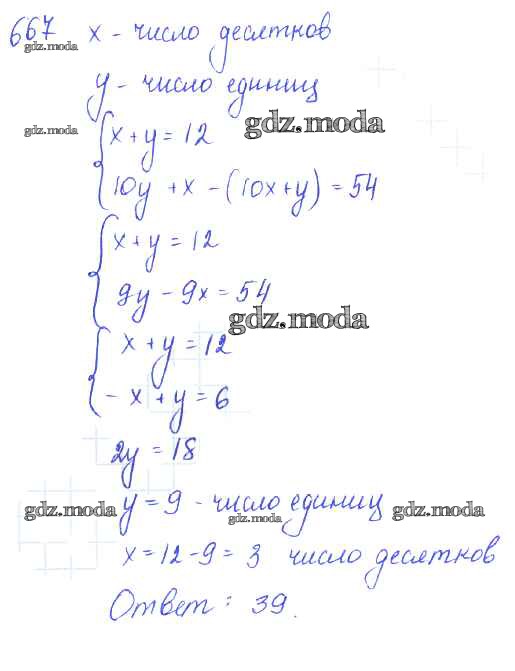 667 x - число десятков
gdz.moda
y - число единиц
gdz.moda
gdz.moda
x + y = 12
10y + x - (10x + y) = 54
x + y = 12
9y - 9x = 54
gdz.moda
x + y = 12
- x + y = 6
2y = 18
gdz.moda y = 9 - число единиц gdz.moda
gdz.moda
x = 12 - 9 = 3 число десятков
Ответ: 39.